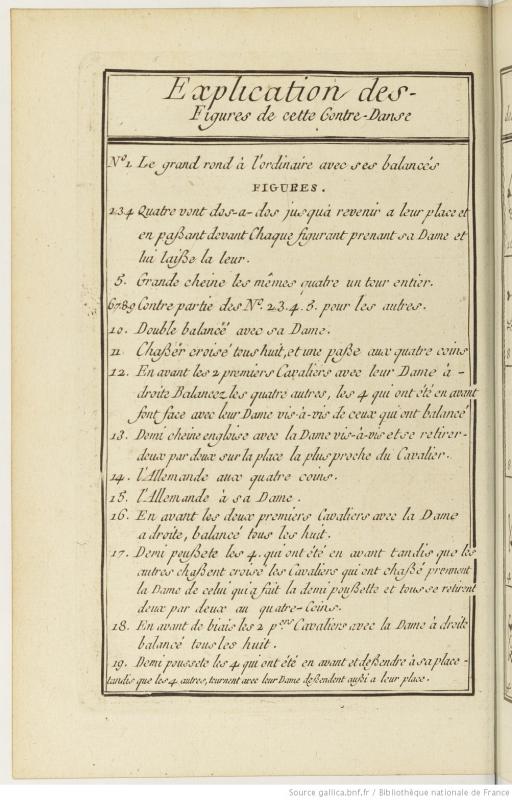 Explication des-
Figures de cette Contre-Danse
Nº.1 Le grand rond à l'ordinaire avec ses balancés
FIGURES.
2.3.4 Quatre vont dos-a-dos jusqu'à revenir a leur place et
en paßant devant Chaque figurant prenant sa Dame et
lui laiße la leur.
5. Grande cheine les mêmes quatre un tour entier.
6.7.8.9 Contre partie des Nº. 2.3.4.5. pour les autres.
10. Double balancé avec sa Dame.
11 Chaßér croisé tous huit, et une paße aux quatre coins
12. En avant les 2 premiers Cavaliers avec leur Dame à -
droite Balancez les quatre autres, les 4 qui ont été en avant
font face avec leur Dame vis-à-vis de ceux qui ont balancé
13. Demi cheine engloise avec la Dame vis-à-vis et se retirer-
deux par deux sur la place la plus proche du Cavalier.
14. l'Allemande aux quatre coins.
15. l'Allemande à sa Dame.
16. En avant les deux premiers Cavaliers avec la Dame
a droite, balancé tous les huit.
17. Demi poußete les 4. qui ont été en avant tandis que les
autres chaßent croisé les Cavaliers qui ont chaßé prennent
la Dame de celui qui a fait la demi poußette et tous se retirent
deux par deux au quatre-Coins.
18. En avant de biais les 2 p.ers Cavaliers avec la Dame à droite
balancé tous les huit.
19. Demi poussete les 4 qui ont été en avant et deßendre à sa place -
tandis que les 4 autres, tournent avec leur Dame deßendent außi a leur place.
Source gallica.bnf.fr / Bibliothèque nationale de France